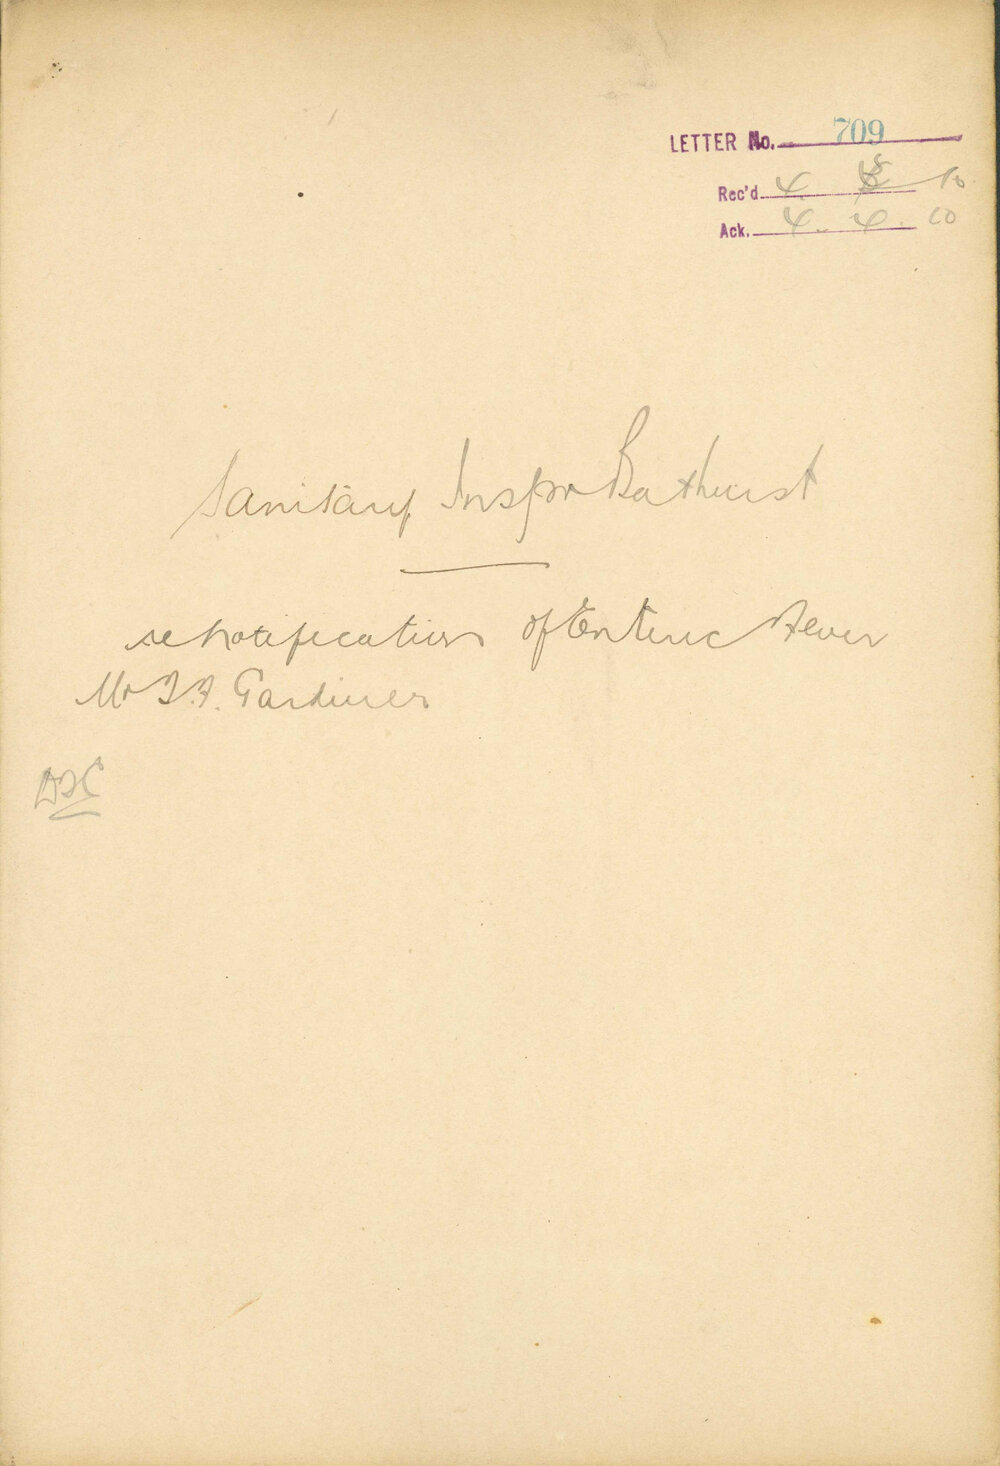 LETTER No. 709
Rec'd 4. 10
Ack. 4. 4. 10
Sanitary Inspr Bathurst
re notification of Enteric Fever
Mr J.F. Gardiner